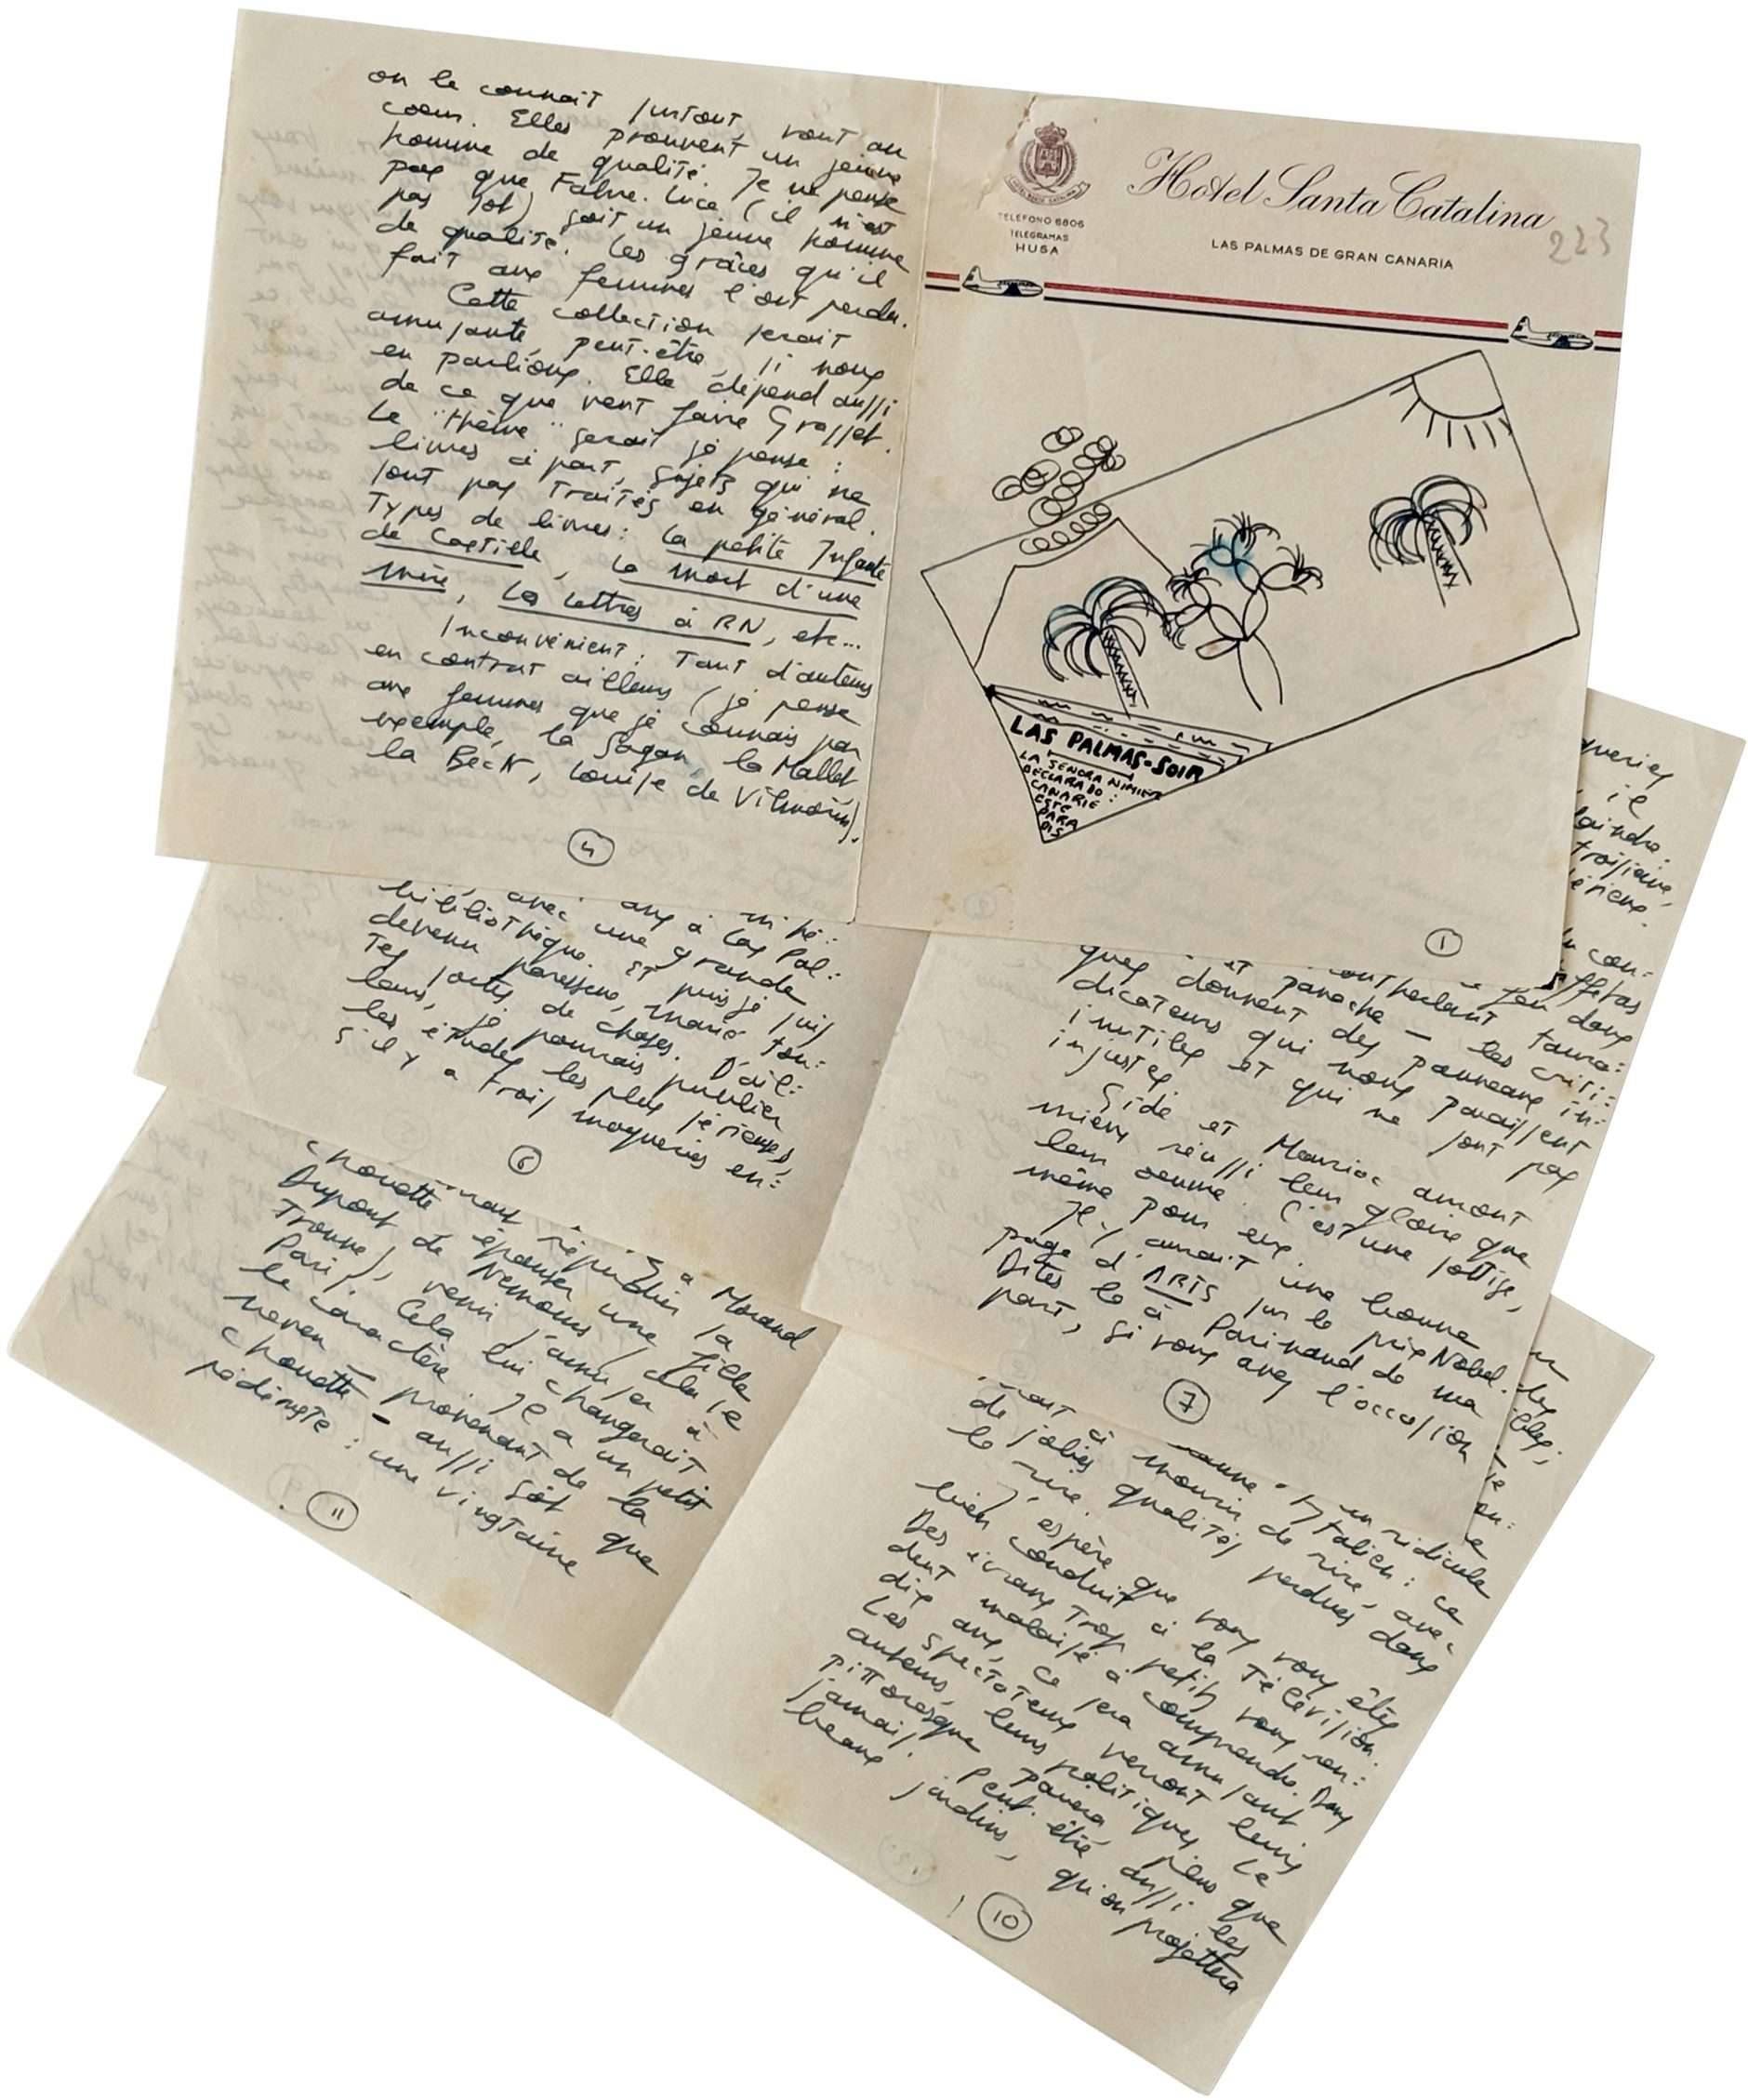 on le connaît surtout, vont au
coeur. Elles prouvent un jeune
homme de qualité. Je ne pense
pas que Fabre-Luce (il n'est
pas sot) soit un jeune homme
de qualité. Les grâces qu'il
fait aux femmes l'ont perdu.
Cette collection serait
amusante, peut-être, si nous
en parlions. Elle dépend aussi
de ce que veut faire Grasset.
Le "thème" serait je pense :
livres à part, sujets qui ne
sont pas traités en général.
Types de livres : La petite Infante
de Castille, La mort d'une
mère, Les lettres à RN, etc...
Inconvénient : Tant d'auteurs
en contrat ailleurs (je pense
aux femmes que je connais par
exemple, la Sagan, la Mallet,
la Beck, Louise de Vilmorin).
4
TELEFONO 6806
TELEGRAMAS
HUSA
Hotel Santa Catalina
LAS PALMAS DE GRAN CANARIA
223
LAS PALMAS-SOIR
LA SENORA NIMIER
DECLARADO :
CANARIE
ESTE
PARA
DIS
1
queries
il
laindre :
troisième,
érieux.
con-
avec une grande
bibliothèque. Et puis je suis
devenu paresseux, marié, tou-
tes sortes de choses. D'ail-
leurs, je pourrais publier
les études les plus sérieuses,
s'il y a trois moqueries en-
6
et panache
ques donnent des panneaux in-
dicateurs qui nous paraissent
inutiles et qui ne sont pas
injustes.
Gide et Mauriac auront
mieux réussi leur gloire que
leur oeuvre. C'est une sottise,
même pour eux.
Il y aurait une bonne
page d'ARTS sur le prix Nobel.
Dites le à Parinaud de ma
part, si vous avez l'occasion
7
répudier la
chouette, épouser une fille
Dupont de Nemours (cela se
trouve), venir s'amuser à
Paris. Cela lui changerait
le caractère. Il a un petit
neveu - provenant de la
chouette - aussi sot que
pédéraste : une vingtaine
11
un ridicule
italien : ce
à mourir de rire, avec
de jolies qualités perdues dans
le rire.
J'espère que vous vous êtes
bien conduit à la Télévision.
Des écrans trop petits vous ren-
dent malaisé à comprendre. Dans
dix ans, ce sera amusant.
Les spectateurs verront leurs
auteurs, leurs politiques. Le
pittoresque paiera, plus que
jamais. Peut-être aussi les
beaux jardins, qu'on projettera
10